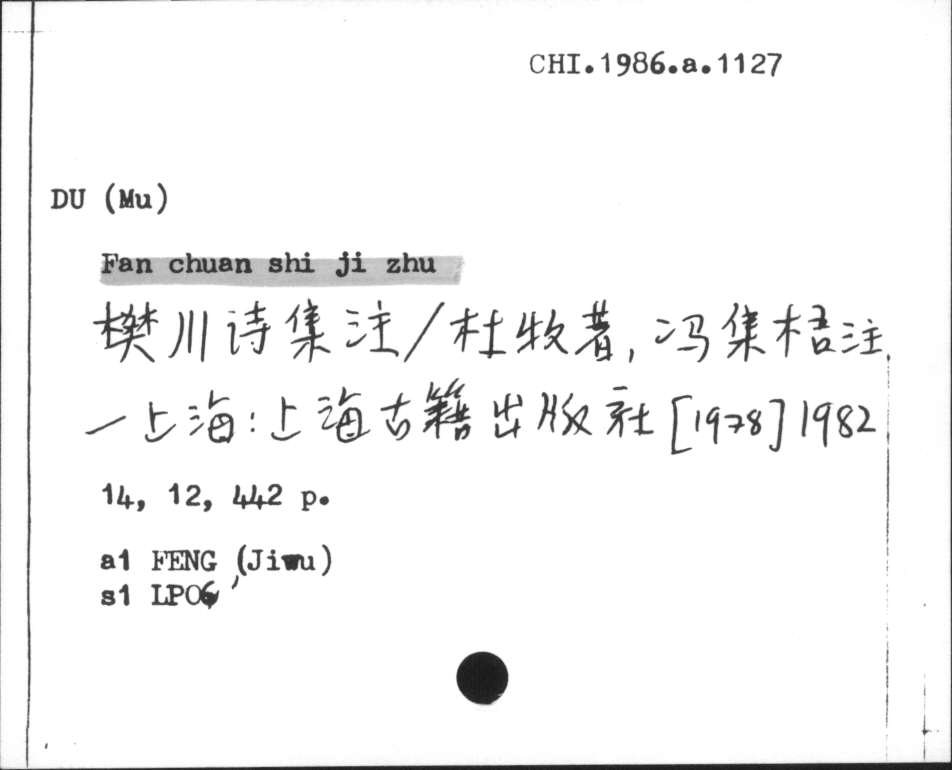 CHI.1986.a.1127
DU (Mu)
Fan chuan shi ji zhu
樊川诗集注/杜牧著,冯集梧注.
—上海:上海古籍出版社[1978]1982
14, 12, 442 p.
a1 FENG (Jiwu)
s1 LPO6